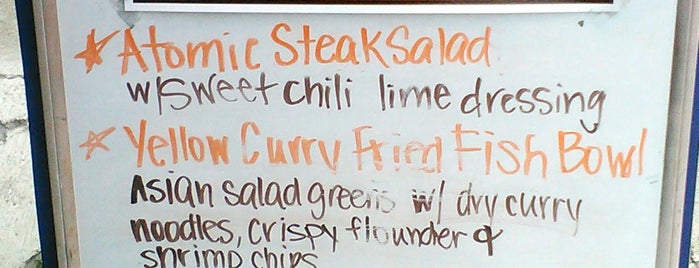 Atomic Steak Salad
w/sweet chili lime dressing
Yellow Curry Fried Fish Bowl
Asian salad greens w/ dry curry
noodles, crispy flounder &
shrimp chips